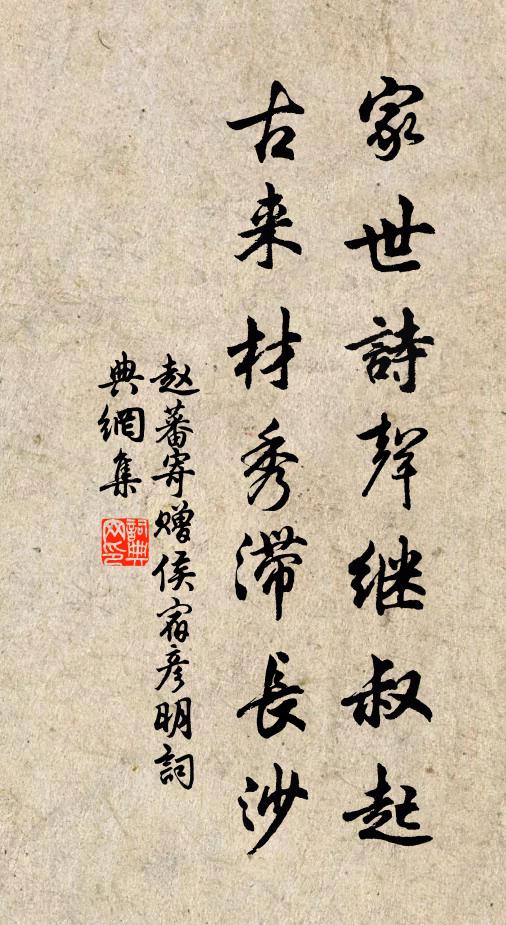 家世詩聲继叔起
古来材秀滞長沙
赵蕃寄赠侯宿彦明詞
典網集
詞典网印